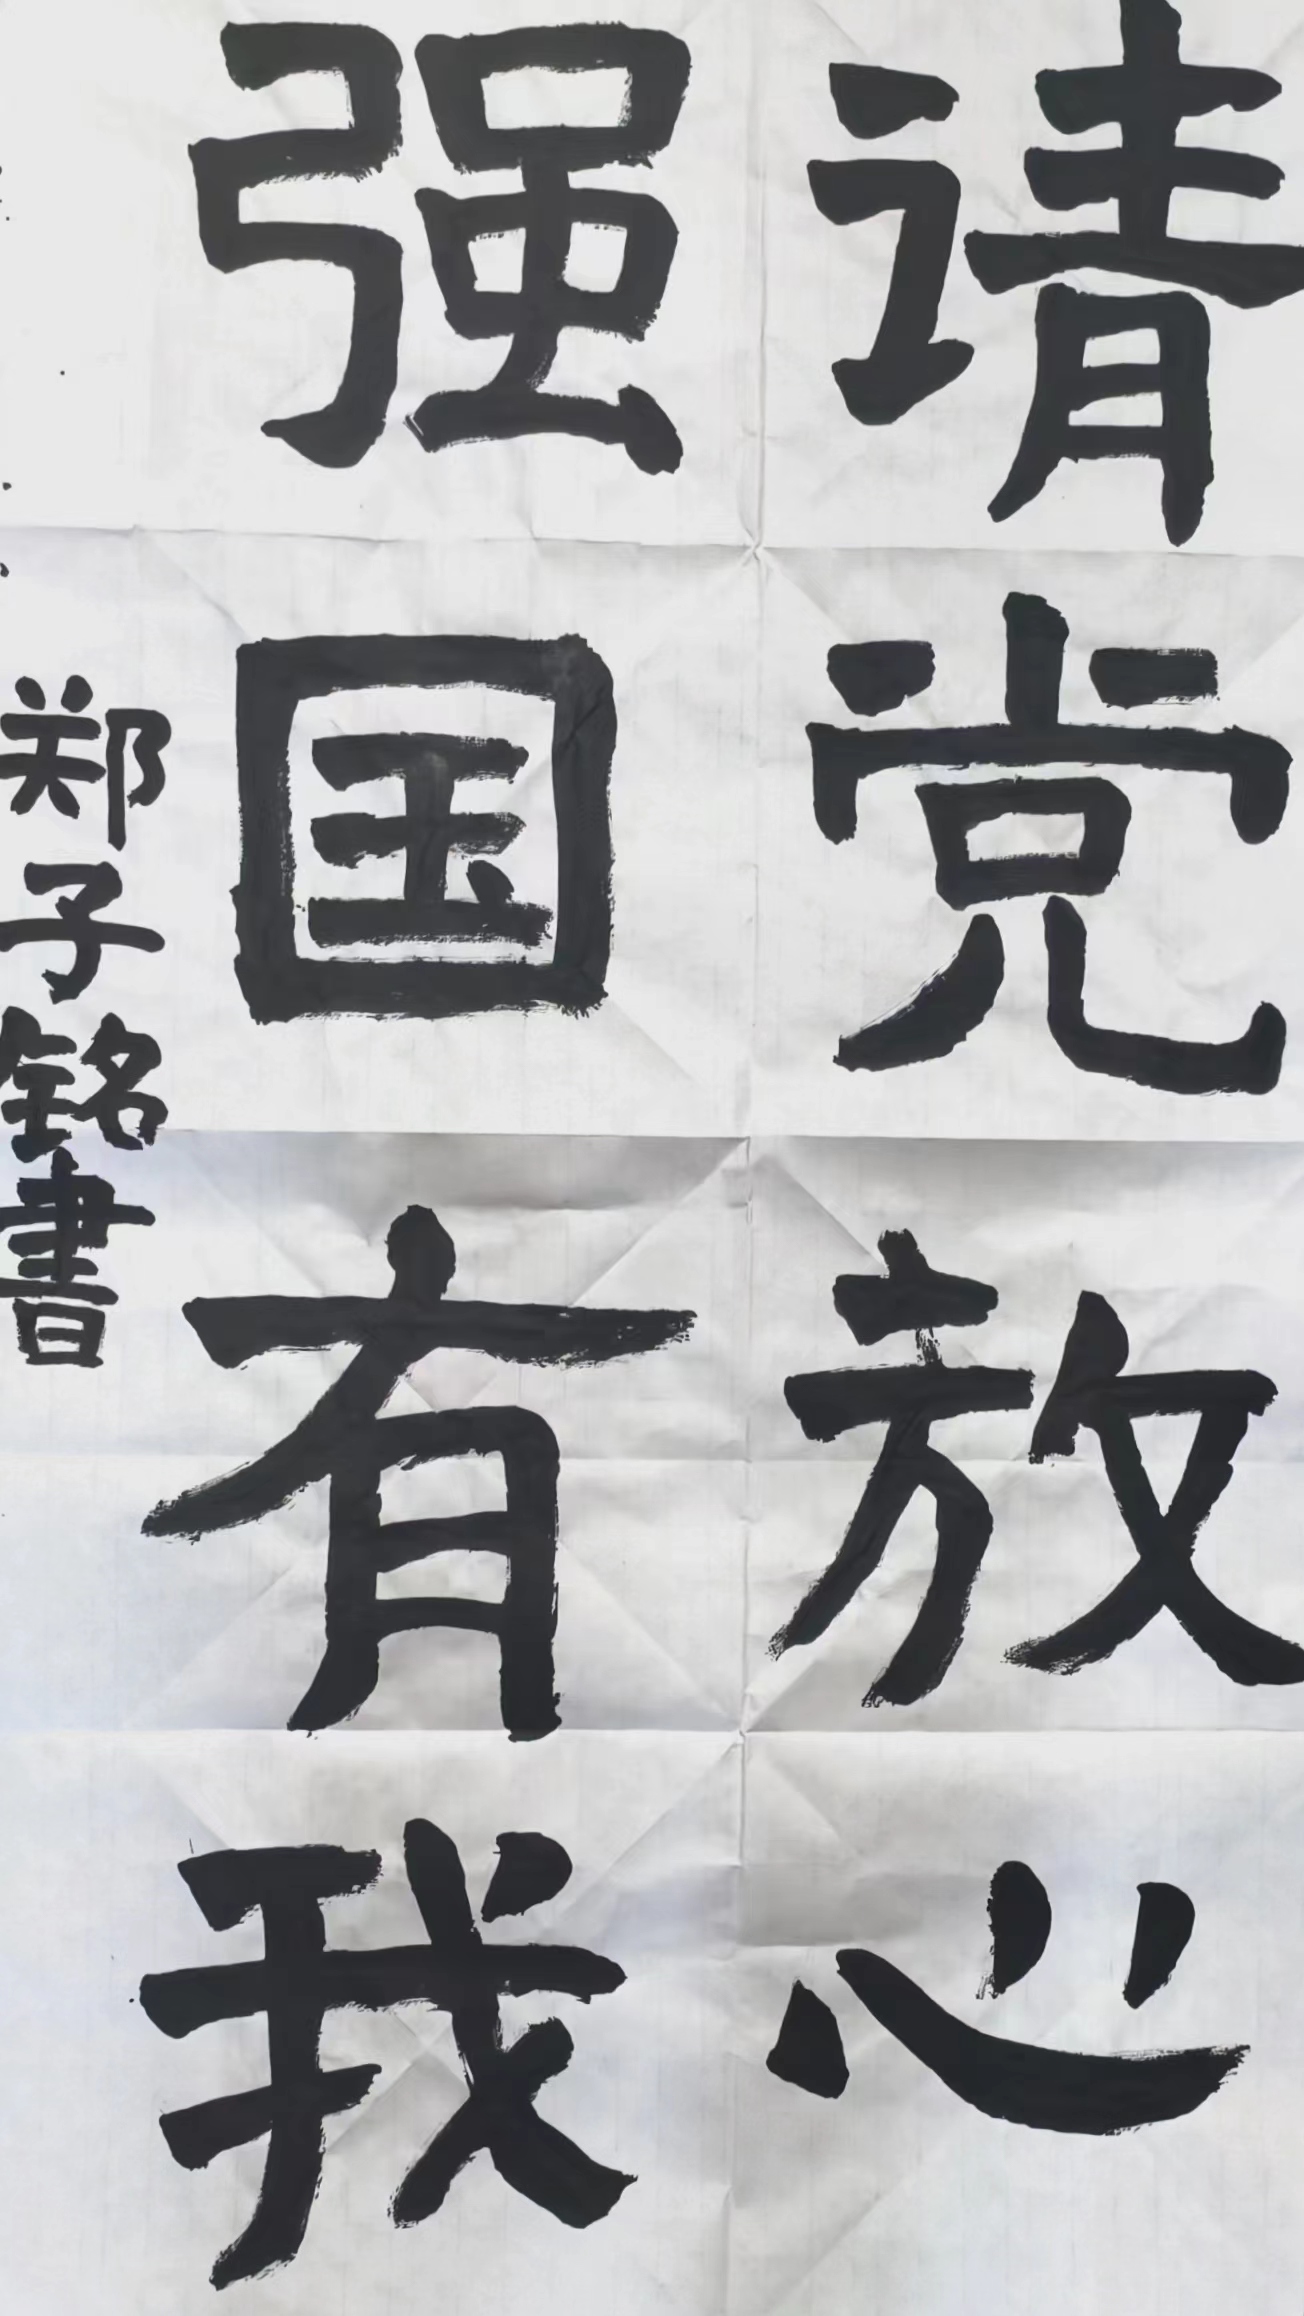 请党放心
强国有我
郑子铭書